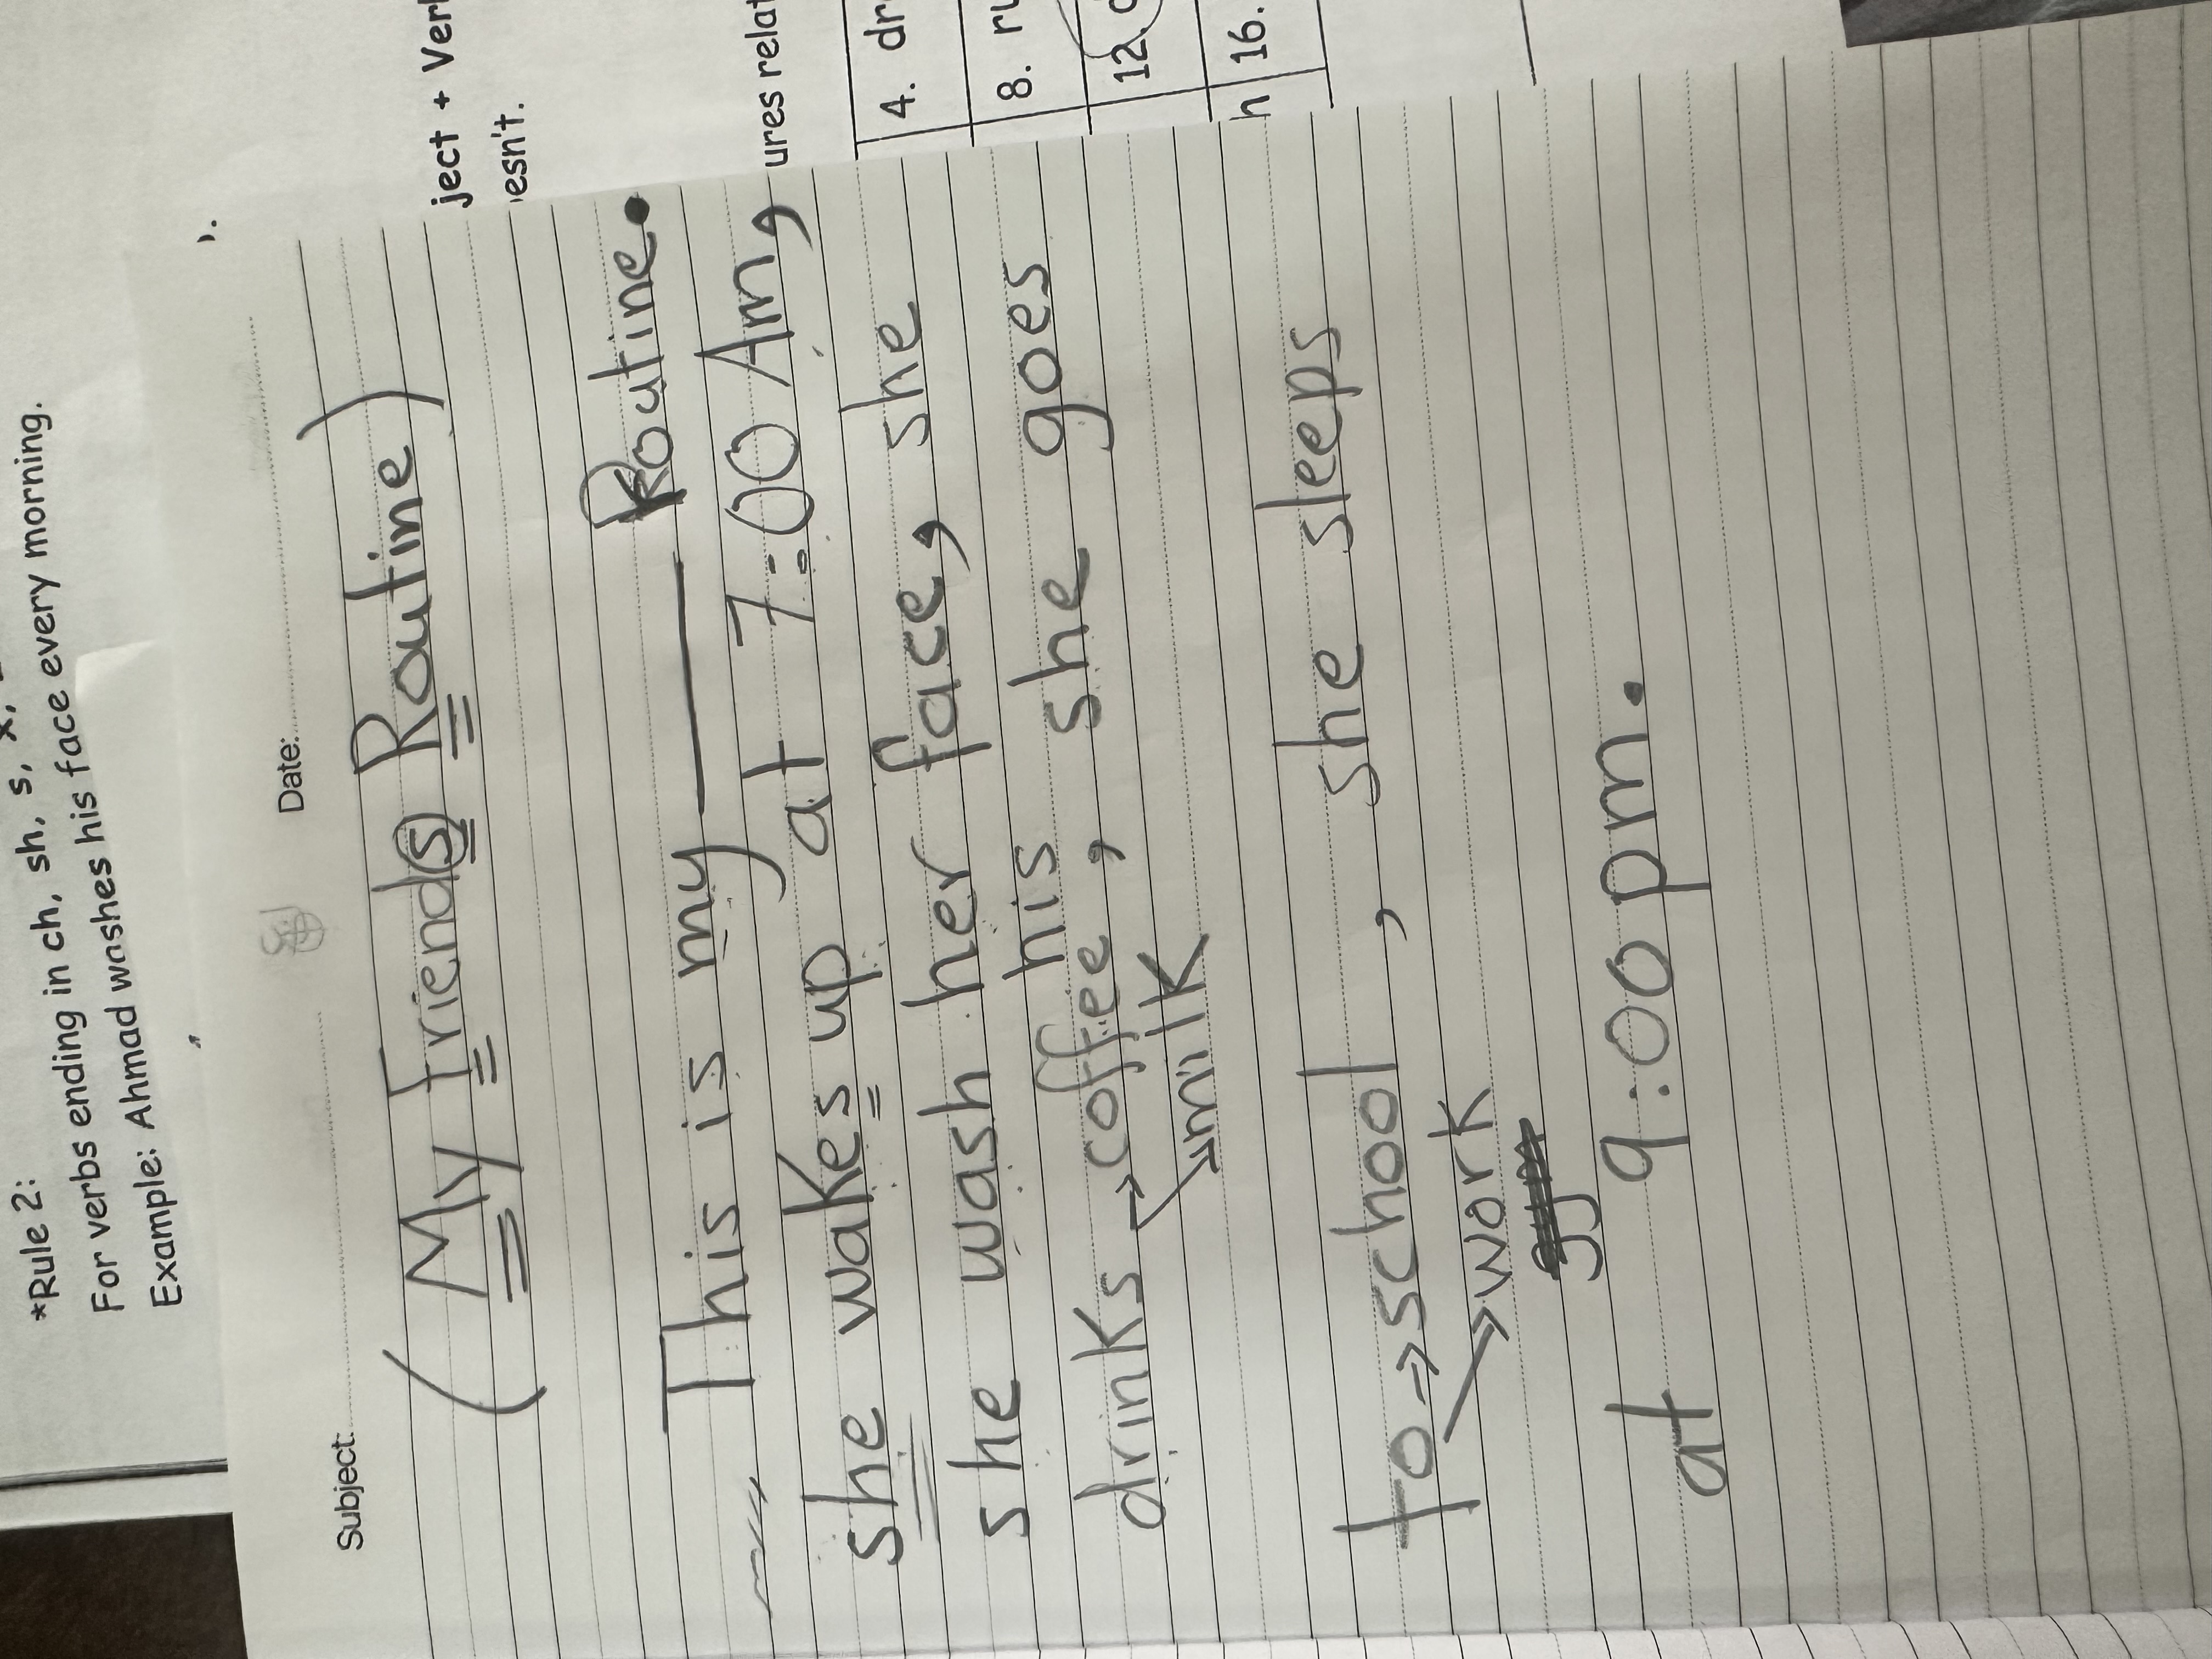 *Rule 2:
For verbs ending in ch, sh, s, x,
Example: Ahmad washes his face every morning.
ject + Ver
esn't.
ures relat
4. dr
8. ru
12.
h 16.
Subject: Date:
(My Friend(s) Routine)
This is my ——— Routine.
she wakes up at 7:00 Am,
she wash her face, she
his
drinks → coffee, she goes
→ milk
to → school, she sleeps
→ work
at 9:00 pm.